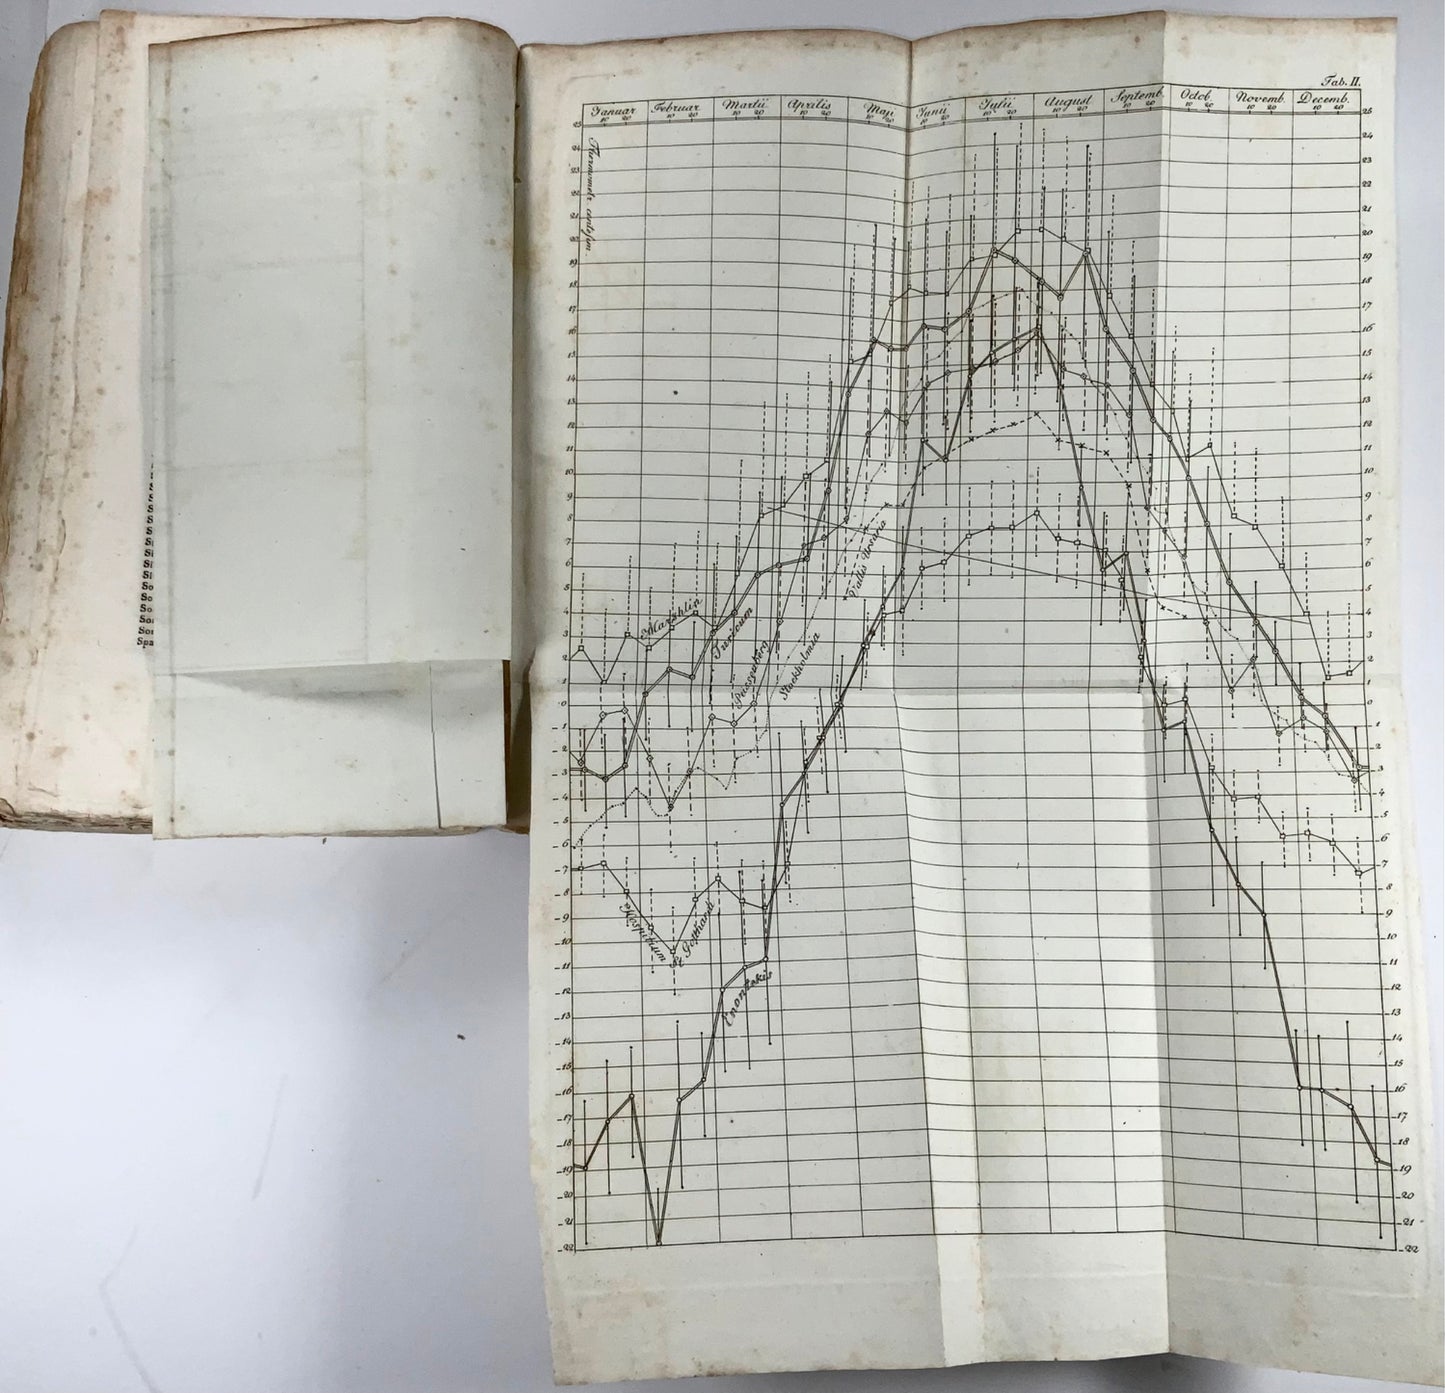 Tab. II.
Januar Februar Martii Aprilis Maji Junii Julii August Septemb. Octob. Novemb. Decemb.
10 20 10 20 10 20 10 20 10 20 10 20 10 20 10 20 10 20 10 20 10 20 10 20
25 25
24 24
23 23
22 22
21 21
20 20
19 19
18 18
17 17
16 16
15 15
14 14
13 13
12 12
11 11
10 10
9 9
8 8
7 7
6 6
5 5
4 4
3 3
2 2
1 1
0 0
-1 -1
-2 -2
-3 -3
-4 -4
-5 -5
-6 -6
-7 -7
-8 -8
-9 -9
-10 -10
-11 -11
-12 -12
-13 -13
-14 -14
-15 -15
-16 -16
-17 -17
-18 -18
-19 -19
-20 -20
-21 -21
-22 -22
Marshlin
Turicum
Peissenberg
Stockholmia
Vallis Ursaria
Hospitium
St Gotthardi
Enontekis
S
S
S
S
S
S
Si
Si
Si
So
So
So
So
Sor
Spa